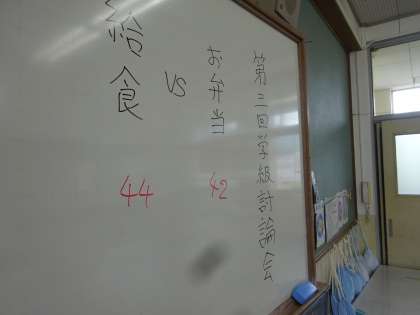 第三回学級討論会
お弁当
42
vs
給食
44